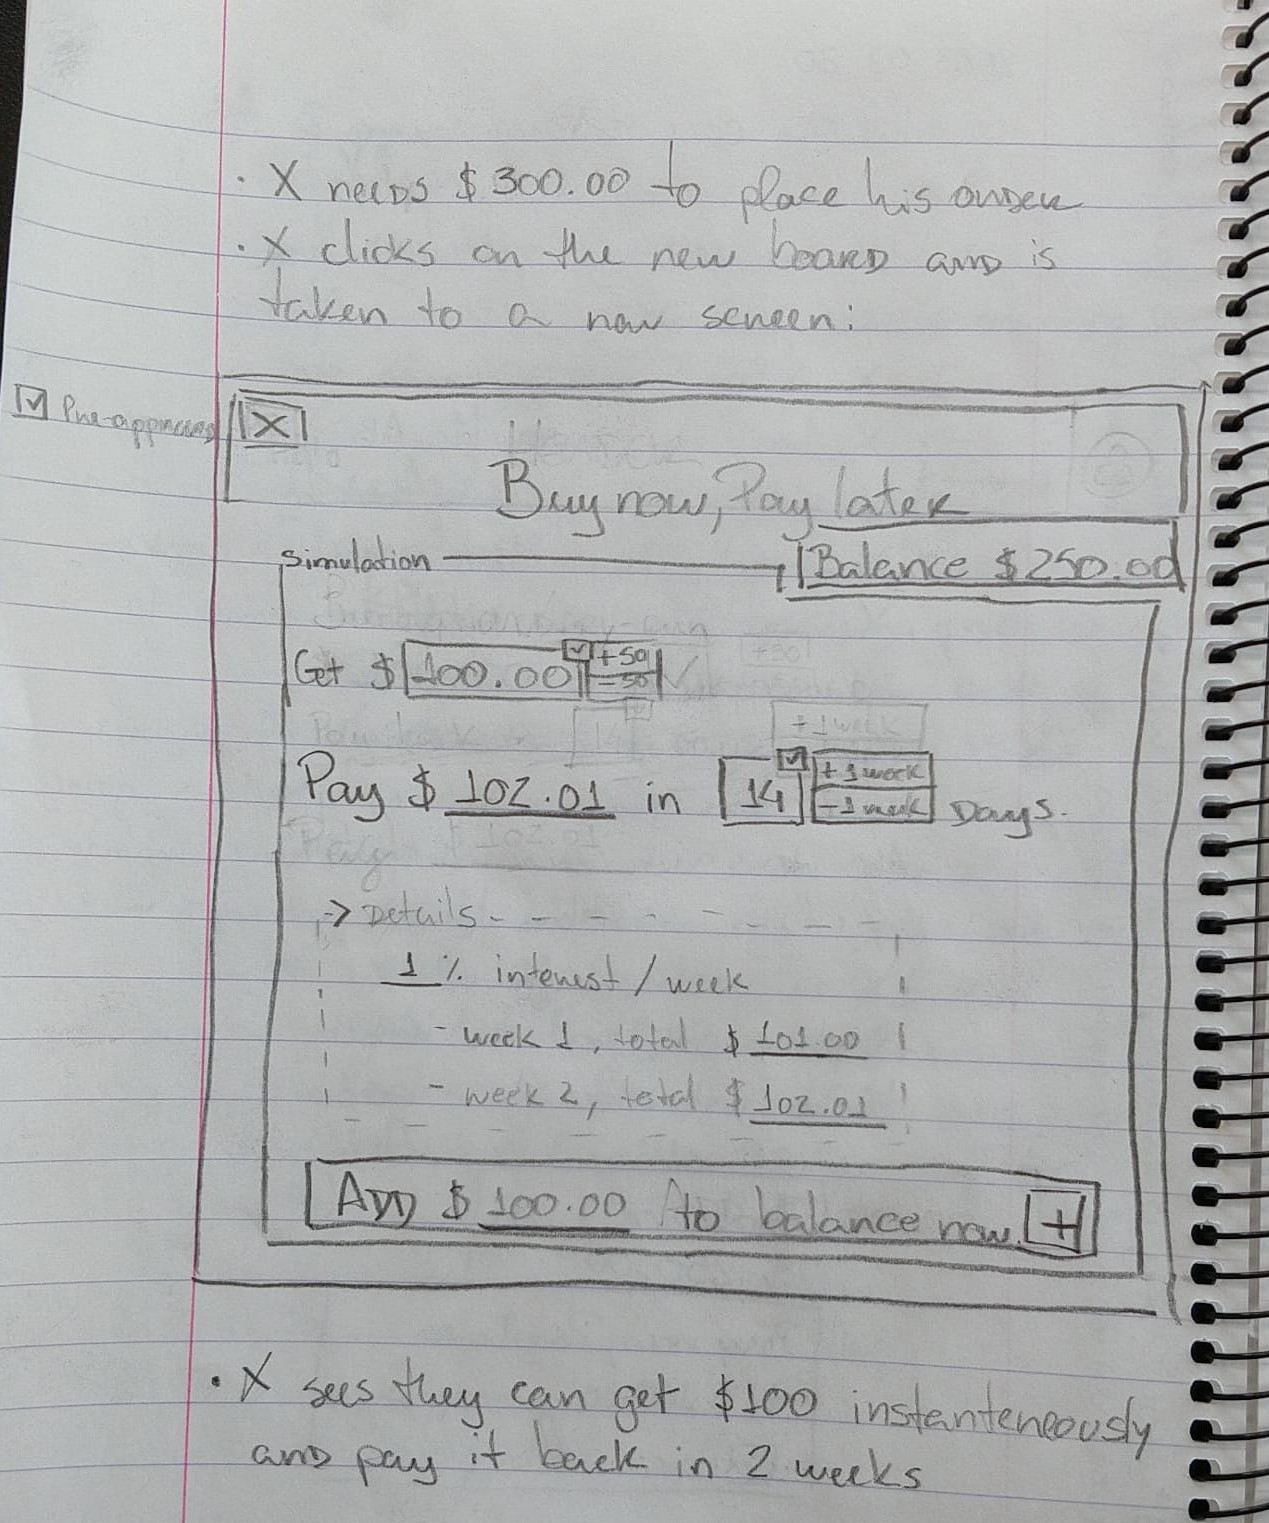 · X needs $300.00 to place his order
· X clicks on the new board and is
taken to a new screen:
☑ Pre-approved
X
Buy now, Pay later
Balance $250.00
simulation
Get $ 100.00 +50
-50
Pay $ 102.01 in 14 +1 week
-1 week Days.
-> Details
1 % interest / week
- week 1, total $ 101.00
- week 2, total $ 102.01
ADD $ 100.00 to balance now. +
· X sees they can get $100 instanteneously
and pay it back in 2 weeks